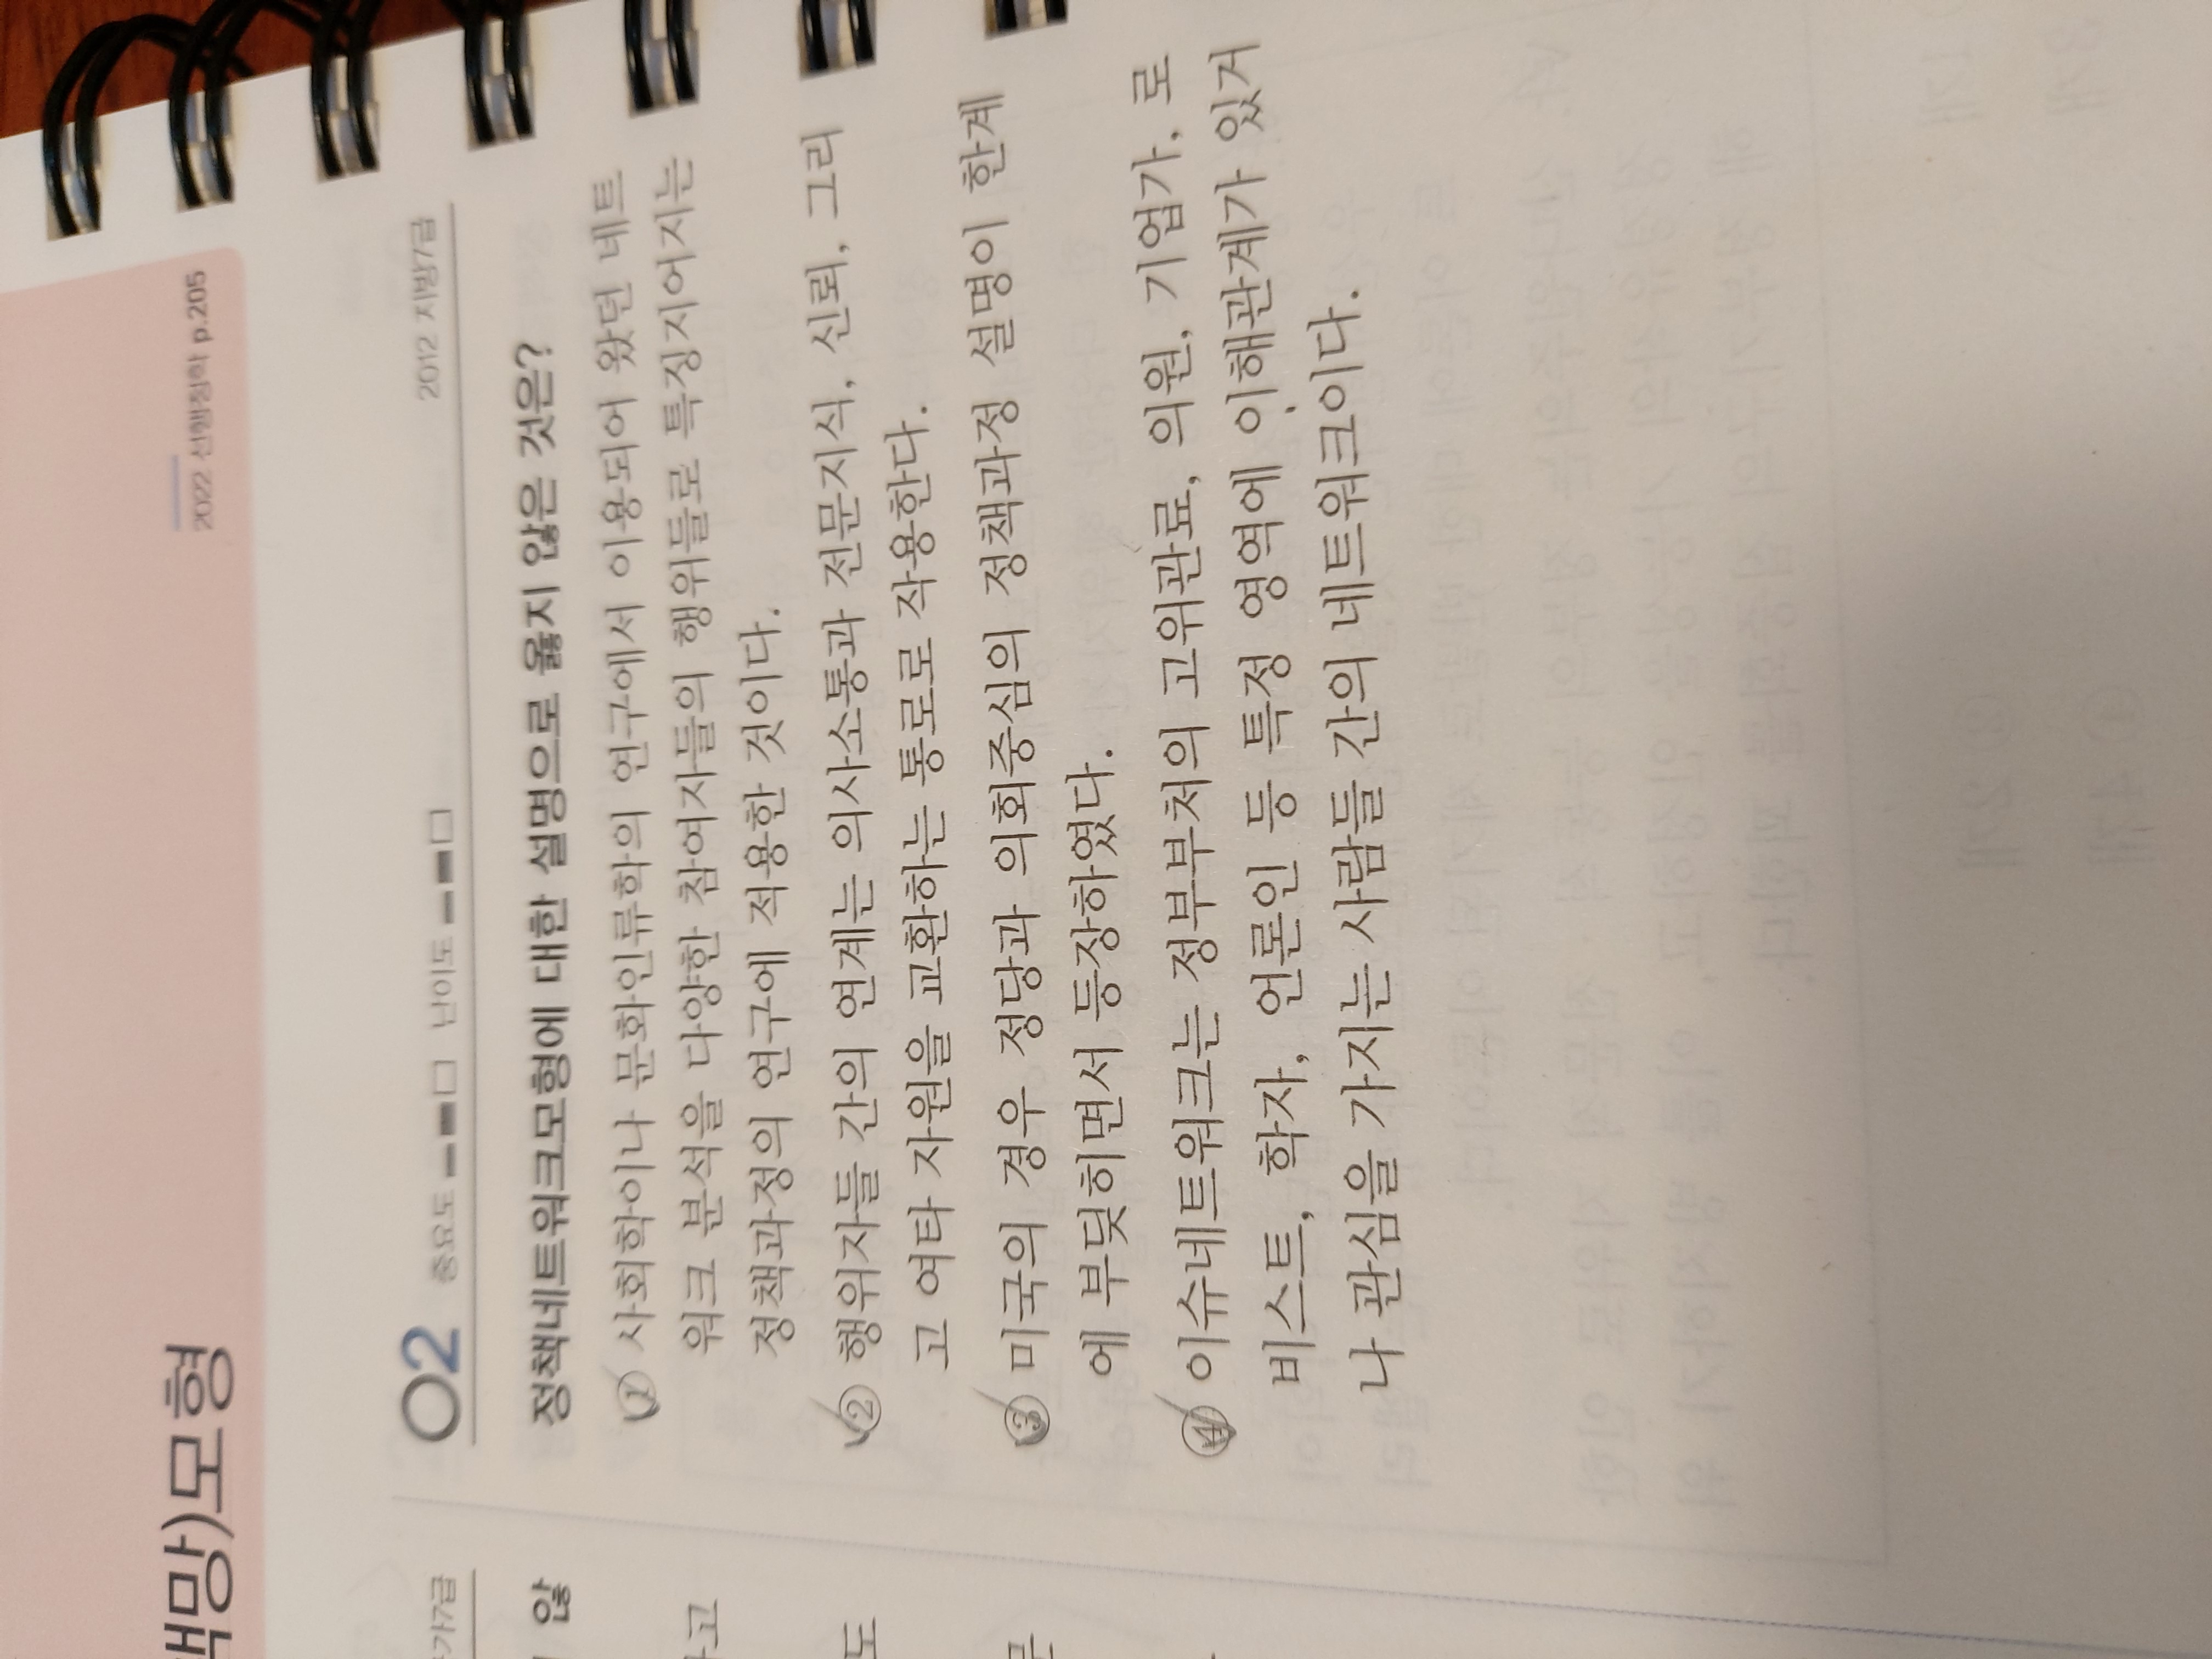 책망)모형
2022 선행정학 p.205
02 중요도 난이도 2012 지방7급
정책네트워크모형에 대한 설명으로 옳지 않은 것은?
① 사회학이나 문화인류학의 연구에서 이용되어 왔던 네트
워크 분석을 다양한 참여자들의 행위들로 특징지어지는
정책과정의 연구에 적용한 것이다.
② 행위자들 간의 연계는 의사소통과 전문지식, 신뢰, 그리
고 여타 자원을 교환하는 통로로 작용한다.
③ 미국의 경우 정당과 의회중심의 정책과정 설명이 한계
에 부딪히면서 등장하였다.
④ 이슈네트워크는 정부부처의 고위관료, 의원, 기업가, 로
비스트, 학자, 언론인 등 특정 영역에 이해관계가 있거
나 관심을 가지는 사람들 간의 네트워크이다.
가7급
않
고
도